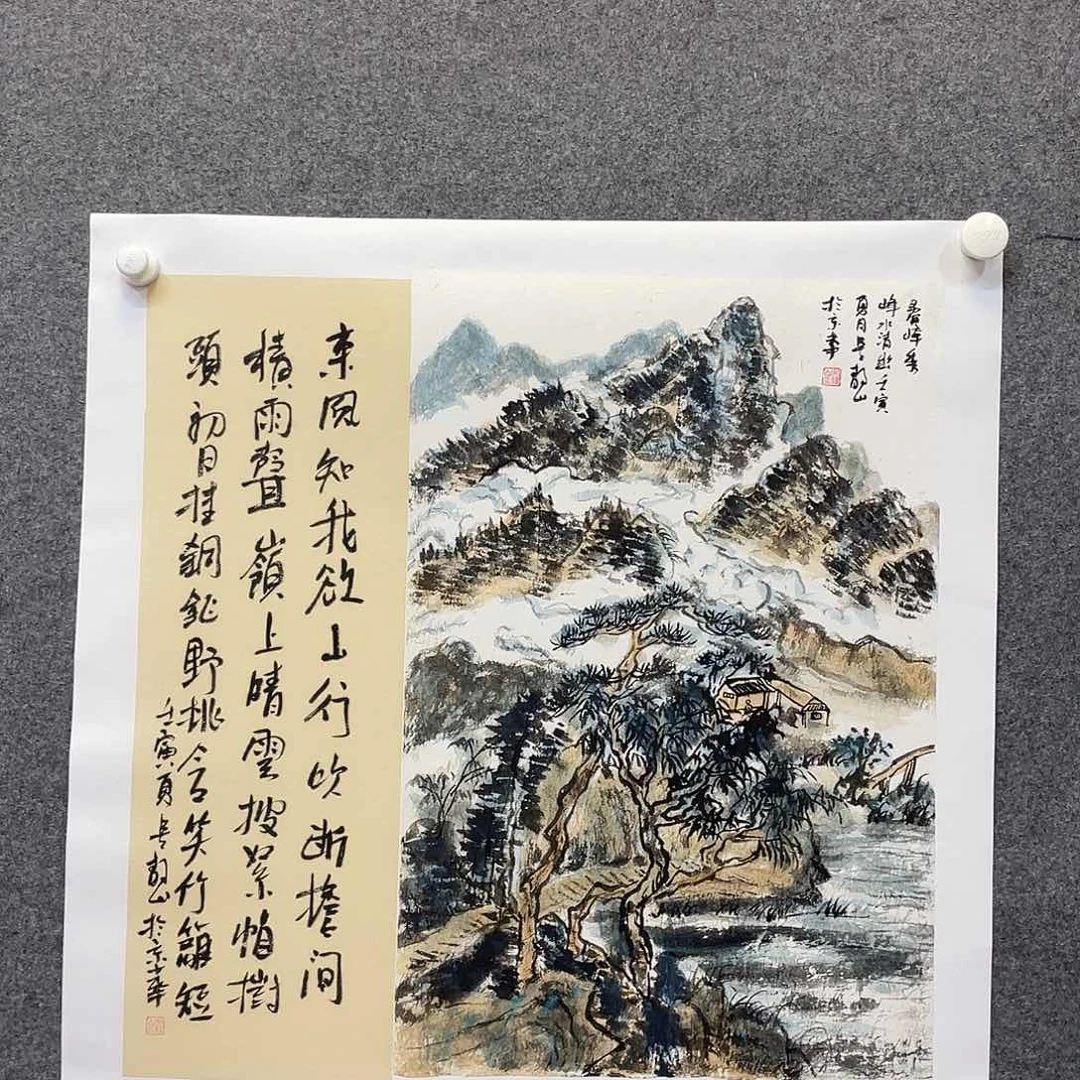 東风知我欲山行吹断檐间
積雨聲嶺上晴雲披絮帽樹
頭初日挂銅鉦野桃含笑竹籬短
壬寅夏山於京華
峰秀
峰水清幽壬寅
夏月山
於京華